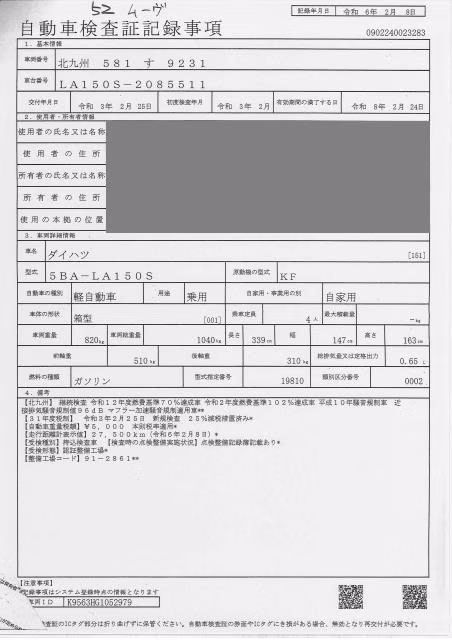 52 ムーヴ
記録年月日 令和 6年 2月 8日
自動車検査証記録事項
0902240023283
1. 基本情報
車両番号 北九州 581 す 9231
車台番号 LA150S-2085511
交付年月日 令和 3年 2月 25日 初度検査年月 令和 3年 2月 有効期間の満了する日 令和 8年 2月 24日
2. 使用者・所有者情報
使用者の氏名又は名称
使用者の住所
所有者の氏名又は名称
所有者の住所
使用の本拠の位置
3. 車両詳細情報
車名 ダイハツ [151]
型式 5BA-LA150S 原動機の型式 KF
自動車の種別 軽自動車 用途 乗用 自家用・事業用の別 自家用
車体の形状 箱型 [001] 乗車定員 4人 最大積載量 -kg
車両重量 820kg 車両総重量 1040kg 長さ 339cm 幅 147cm 高さ 163cm
前軸重 510kg 後軸重 310kg 総排気量又は定格出力 0.65 L
燃料の種類 ガソリン 型式指定番号 19810 類別区分番号 0002
4. 備考
【北九州】 継続検査 令和12年度燃費基準70%達成車 令和2年度燃費基準102%達成車 平成10年騒音規制車 近
接排気騒音規制値96dB マフラー加速騒音規制適用車**
【31年度税制】 令和3年2月25日 新規検査 25%減税措置済み*
【自動車重量税額】 ¥5,000 本則税率適用*
【走行距離計表示値】 27,500km (令和6年2月8日)*
【受検種別】 持込検査車 【検査時の点検整備実施状況】 点検整備記録簿記載あり*
【受検形態】 認証整備工場*
【整備工場コード】 91-2861**
【注意事項】
記録事項はシステム登録時点の情報となります
車両ID K9563HG1052979
検査証のICタグ部分は折り曲げずに保管ください。自動車検査証の券面やICタグにき損がある場合、無効となり再交付が必要です。